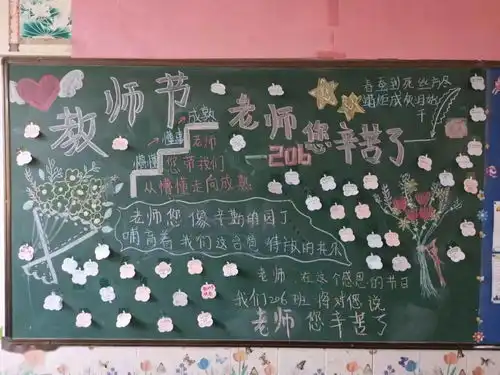 教师节
老师您辛苦了
206
春蚕到死丝方尽
蜡炬成灰泪始
干
成熟
懂事
老师
懵懂
您带我们
从懵懂走向成熟
老师您像辛勤的园丁
哺育着我们这含苞待放的花朵
老师在这个感恩的节日
我们206班将对您说
老师您辛苦了